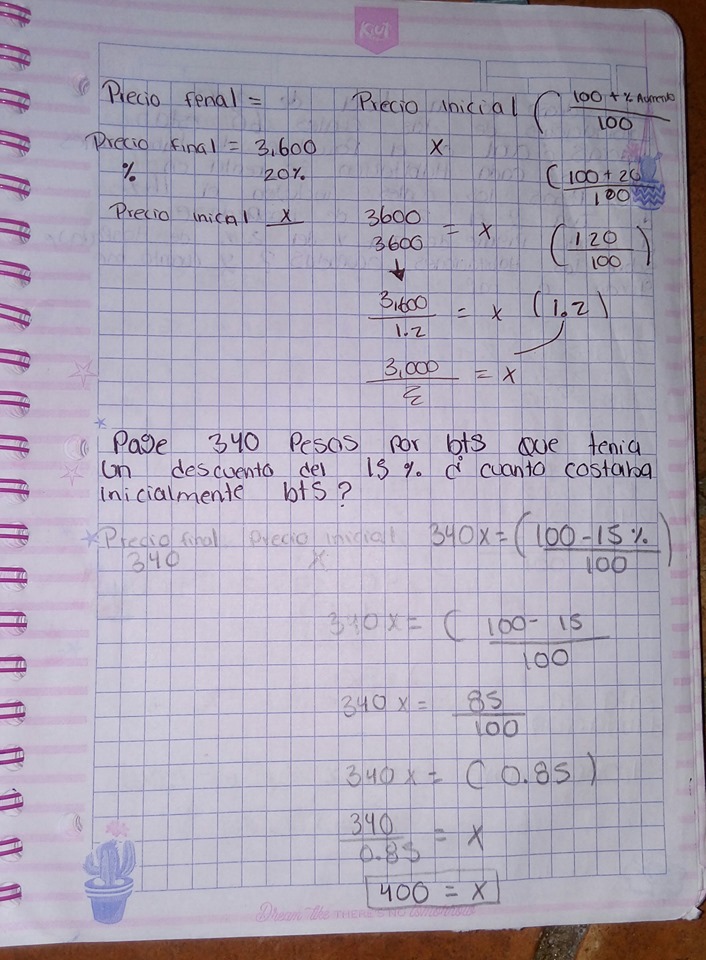 KIUT
Precio fenal = Precio inicial ( 100 + % Aumento / 100
Precio final = 3,600 x
% 20% ( 100 + 20 / 100
Precio inical x 3600 / 3600 = x ( 120 / 100 )
↓
3,600 / 1.2 = x (1.2)
3,000 / = x
Page 340 Pesos por bts que tenia
un descuento del 15 % d cuanto costaba
inicialmente bts?
* Precio final Precio inicial 340x = ( 100 - 15 % / 100 )
340 x
340 x = ( 100 - 15 / 100
340 x = 85 / 100
340 x = ( 0.85 )
340 / 0.85 = x
400 = x
Dream like THERE'S NO tomorrow